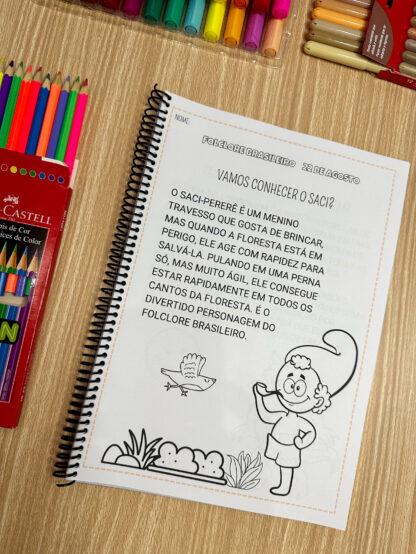 NOME:
FOLCLORE BRASILEIRO 22 DE AGOSTO
VAMOS CONHECER O SACI?
O SACI-PERERÊ É UM MENINO
TRAVESSO QUE GOSTA DE BRINCAR,
MAS QUANDO A FLORESTA ESTÁ EM
PERIGO, ELE AGE COM RAPIDEZ PARA
SALVÁ-LA. PULANDO EM UMA PERNA
SÓ, MAS MUITO ÁGIL, ELE CONSEGUE
ESTAR RAPIDAMENTE EM TODOS OS
CANTOS DA FLORESTA. É O
DIVERTIDO PERSONAGEM DO
FOLCLORE BRASILEIRO.
-CASTELL
pis de Cor
ices de Color